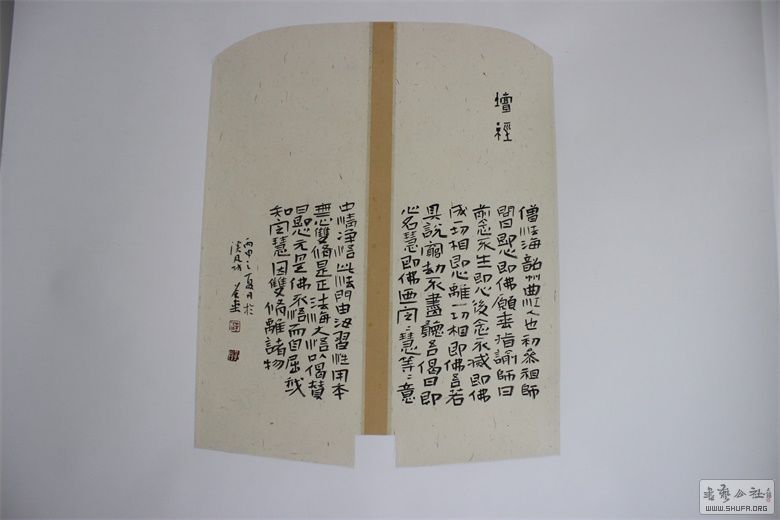 壇經
僧法海韶州曲江人也初參祖師
問曰即心即佛願垂指諭師曰
前念不生即心後念不滅即佛
成一切相即心離一切相即佛吾若
具說窮劫不盡聽吾偈曰即
心名慧即佛迺定〻慧等〻意
中清淨悟此法門由汝習性用本
無雙脩是正法海大悟以偈贊
曰即心元是佛不悟而自屈我
知定慧因雙脩離諸物
丙申之夏月於
書藝公社
WWW.SHUFA.ORG